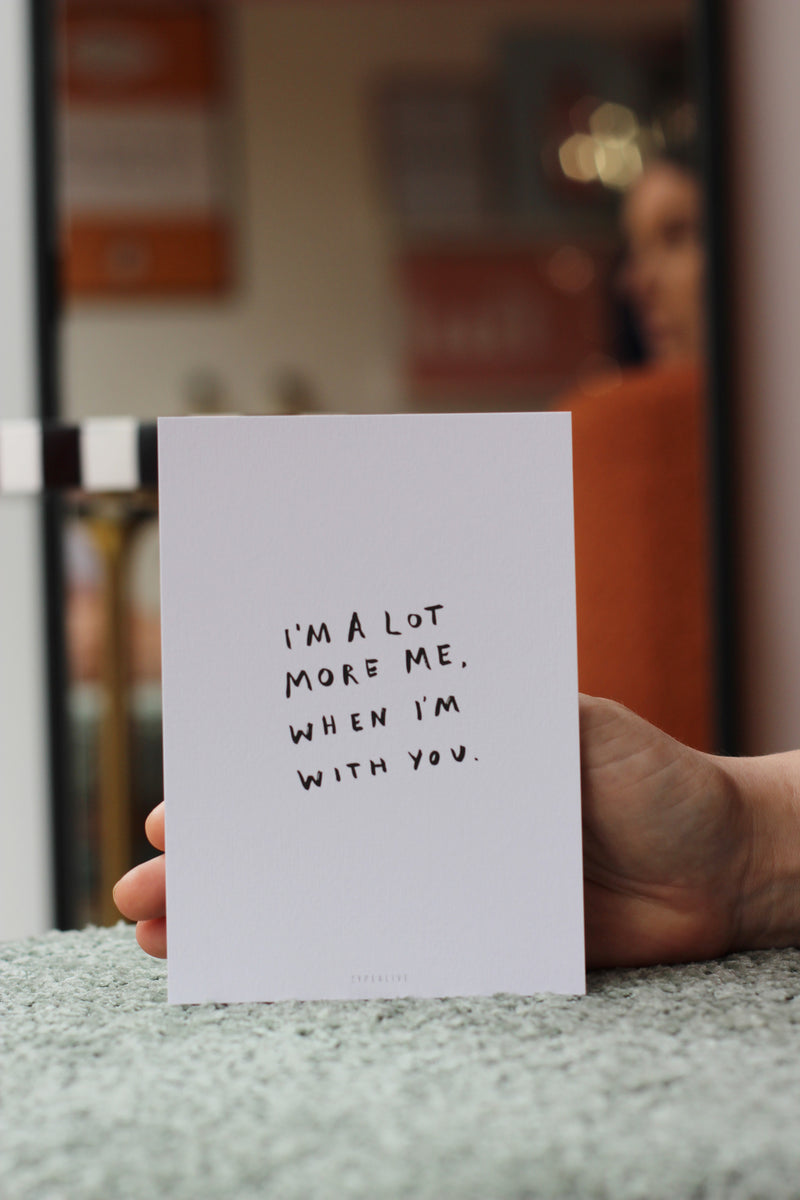 I'M A LOT
MORE ME,
WHEN I'M
WITH YOU.
TYPEALIVE